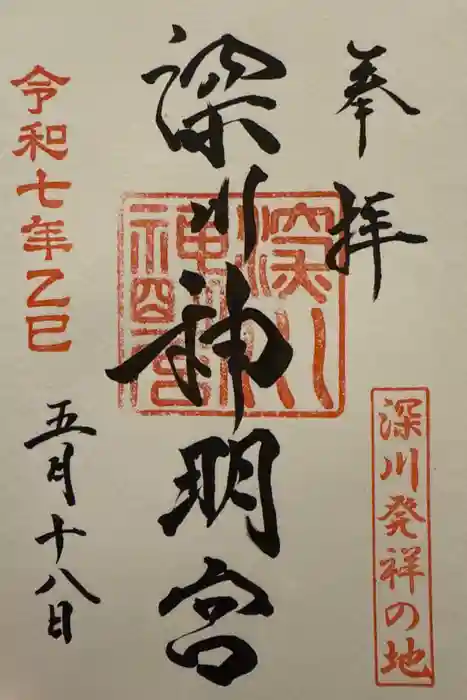 奉拝
深川発祥の地
深川神明宮
令和七年乙巳
五月十八日